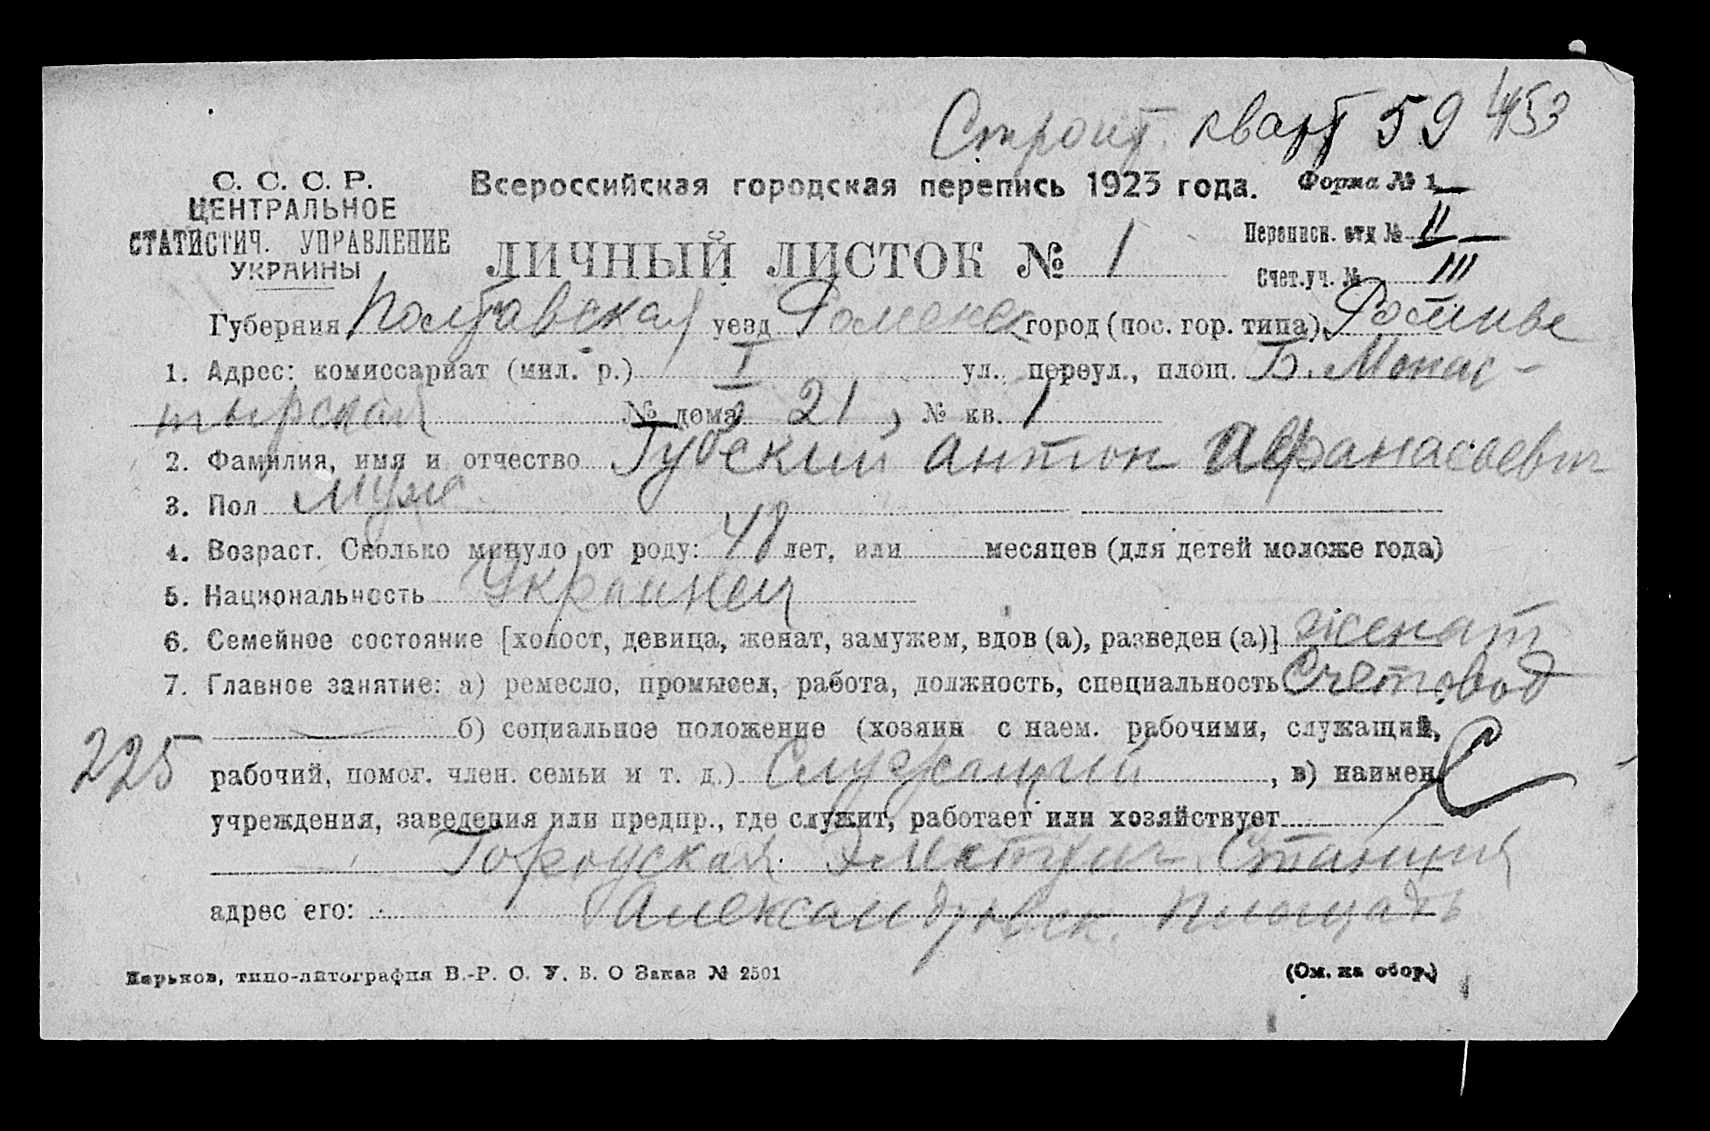 Строит. кварт 59 453
С. С. С. Р.
ЦЕНТРАЛЬНОЕ
СТАТИСТИЧ. УПРАВЛЕНИЕ
УКРАИНЫ
Всероссийская городская перепись 1923 года. Форма № 1
ЛИЧНЫЙ ЛИСТОК № 1
Переписн. отд № II
Счет.уч. № III
Губерния Полтавская уезд Роменск город (пос. гор. типа)
1. Адрес: комиссариат (мил. р.) I ул., переул., площ. Б. Монас-
тырская № дома 21, № кв. 1
2. Фамилия, имя и отчество Губский Антон Афанасоевич
3. Пол муж
4. Возраст. Сколько минуло от роду: 48 лет, или месяцев (для детей моложе года)
5. Национальность Украинец
6. Семейное состояние [холост, девица, женат, замужем, вдов (а), разведен (а)] женат
7. Главное занятие: а) ремесло, промысел, работа, должность, специальность Счетовод
б) социальное положение (хозяин с наем. рабочими, служащий,
225
рабочий, помог. член. семьи и т. д.) Служащий, в) наимен. С
учреждения, заведения или предпр., где служит, работает или хозяйствует
Городская Электрич. Станция
адрес его: Александровск. площадь
Харьков, типо-литография В.-Р. О. У. В. О Заказ № 2501 (См. на обор.)